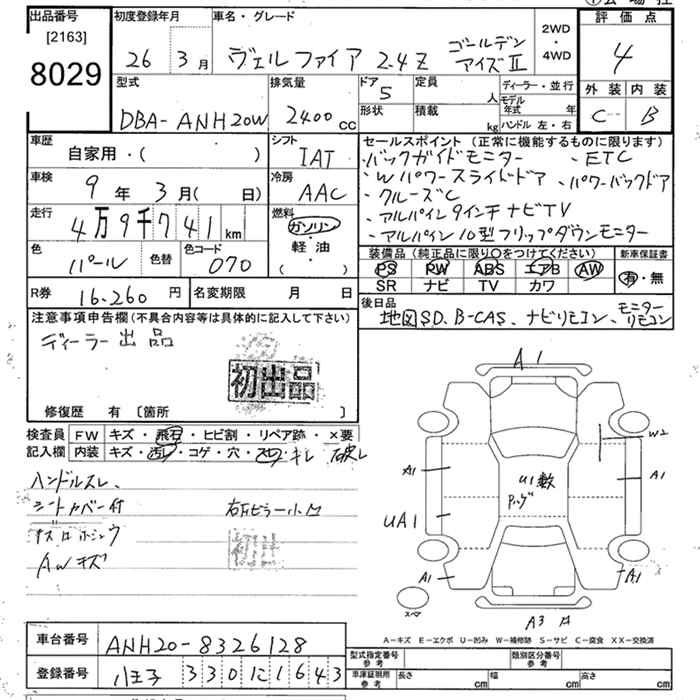 出品番号
[2163]
8029
初度登録年月
26年3月
車名・グレード
ヴェルファイア 2.4Z ゴールデンアイズⅡ
2WD
・
4WD
評価点
4
外装 内装
C B
型式
DBA-ANH20W
排気量
2400cc
ドア
5
形状
定員 人
積載 kg
ディーラー・並行
モデル年式 年
ハンドル 左・右
車歴
自家用・( )
シフト
IAT
車検
9年3月( 日)
冷房
AAC
走行
4万9千741km
燃料
ガソリン
・
軽・油
( )
色
パール
色替
色コード
070
セールスポイント (正常に機能するものに限ります)
・バックガイドモニター ・ETC
・Wパワースライドドア ・パワーバックドア
・クルーズC
・アルパイン9インチナビTV
・アルパイン10型フリップダウンモニター
装備品 (純正品に限り○をつけてください)
PS PW ABS エアB AW
SR ナビ TV カワ
新車保証書
有・無
R券
16.260円
名変期限 月 日
後日品
地図SD、B-CAS、ナビリモコン、モニターリモコン
注意事項申告欄(不具合内容等は具体的に記入して下さい)
ディーラー出品
初出品
修復歴 有 [箇所 ]
検査員記入欄
FW キズ・飛石・ヒビ割・リペア跡・×要
内装 キズ・汚レ・コゲ・穴・スレ・キレ 破レ
ハンドルスレ、
シートカバー付
右Bピラー小凹
AWキズ
A1
A1
UA1
A1
U1数
W2
A1
A1
スペア
A3
A-キズ E-エクボ U-凹み W-補修跡 S-サビ C-腐食 XX-交換済
車台番号
ANH20-8326128
登録番号
八王子 330に1643
型式指定番号 参考
類別区分番号 参考
車庫証明用 参考
長さ cm
幅 cm
高さ cm